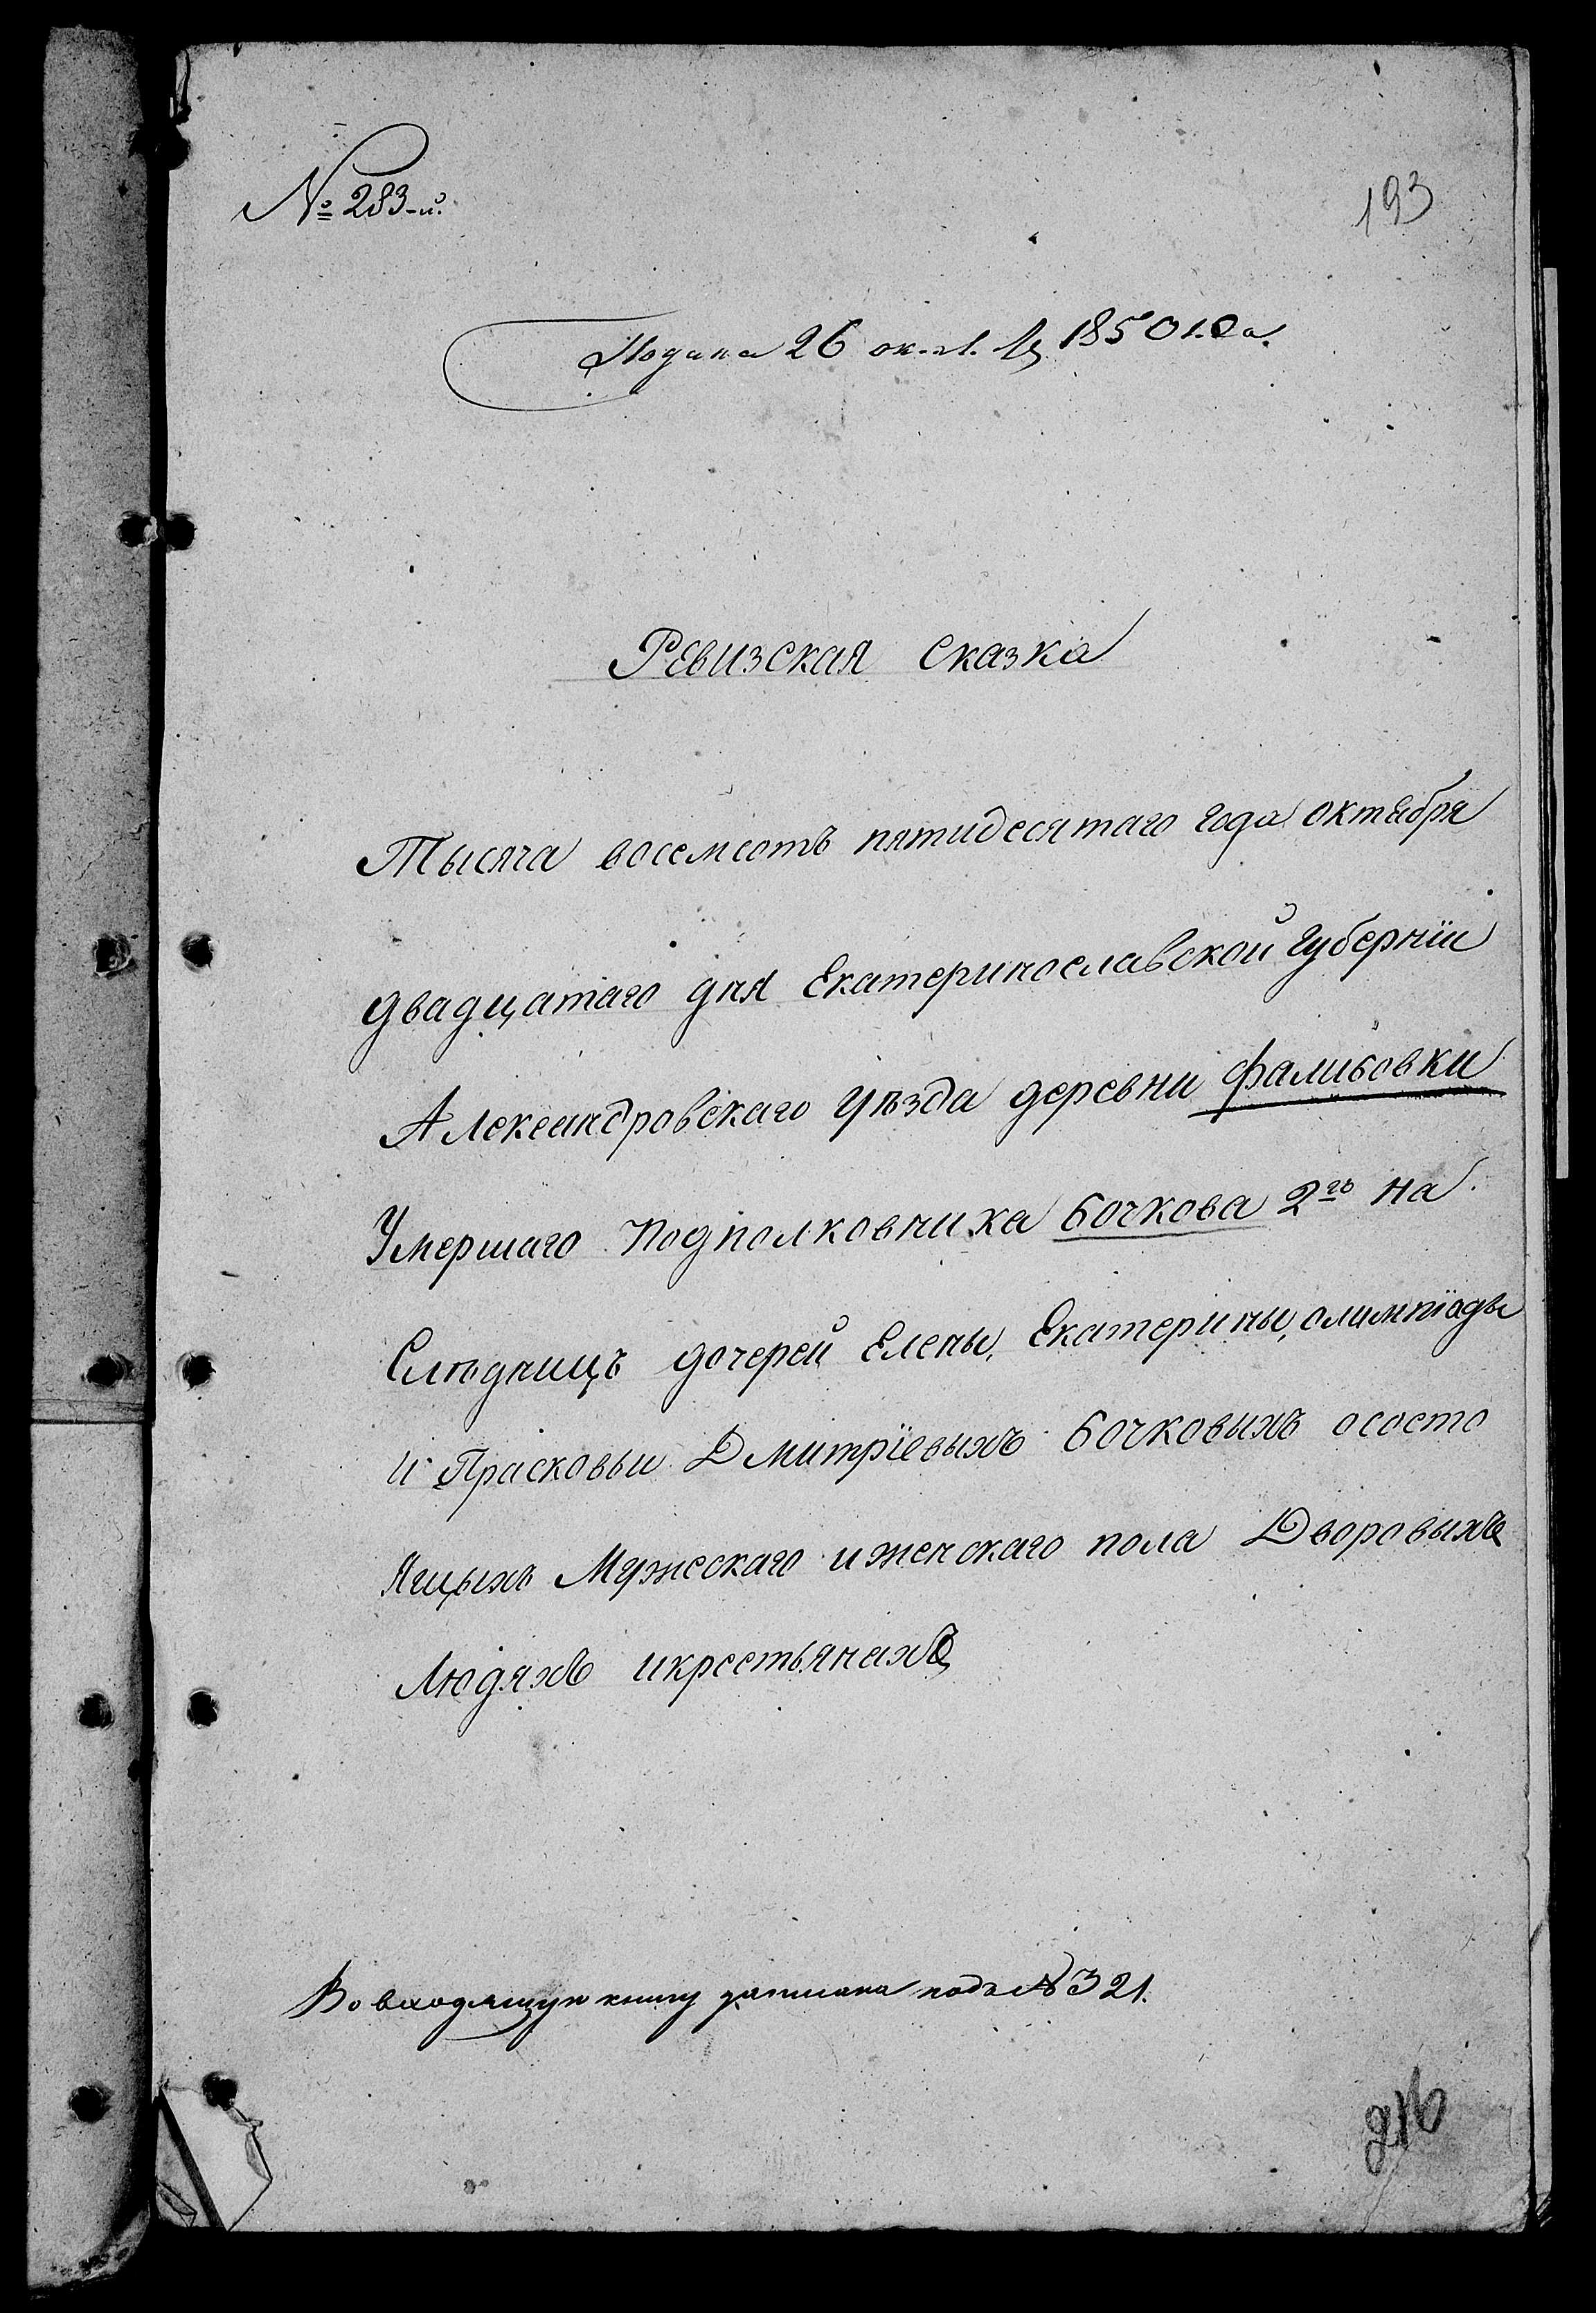 № 283-й.
193
Подана 26 окт. 1850 года.
Ревизская сказка
Тысяча восемсотъ пятидесятаго года октября
двадцатаго дня Екатеринославской губернїи
Александровскаго уѣзда деревни Фалиьовки
Умершаго Подполковника Бочкова 2го на
Слюдницъ дочерей Елены, Екатерины, олимпїады
и Прасковьи Дмитрїевыхъ Бочковыхъ осо
сто
Ящыхъ Мужескаго иженскаго пола Дворовыхъ
Людяхъ икрестьянахъ
Во входящую книгу записана подъ № 321.
216